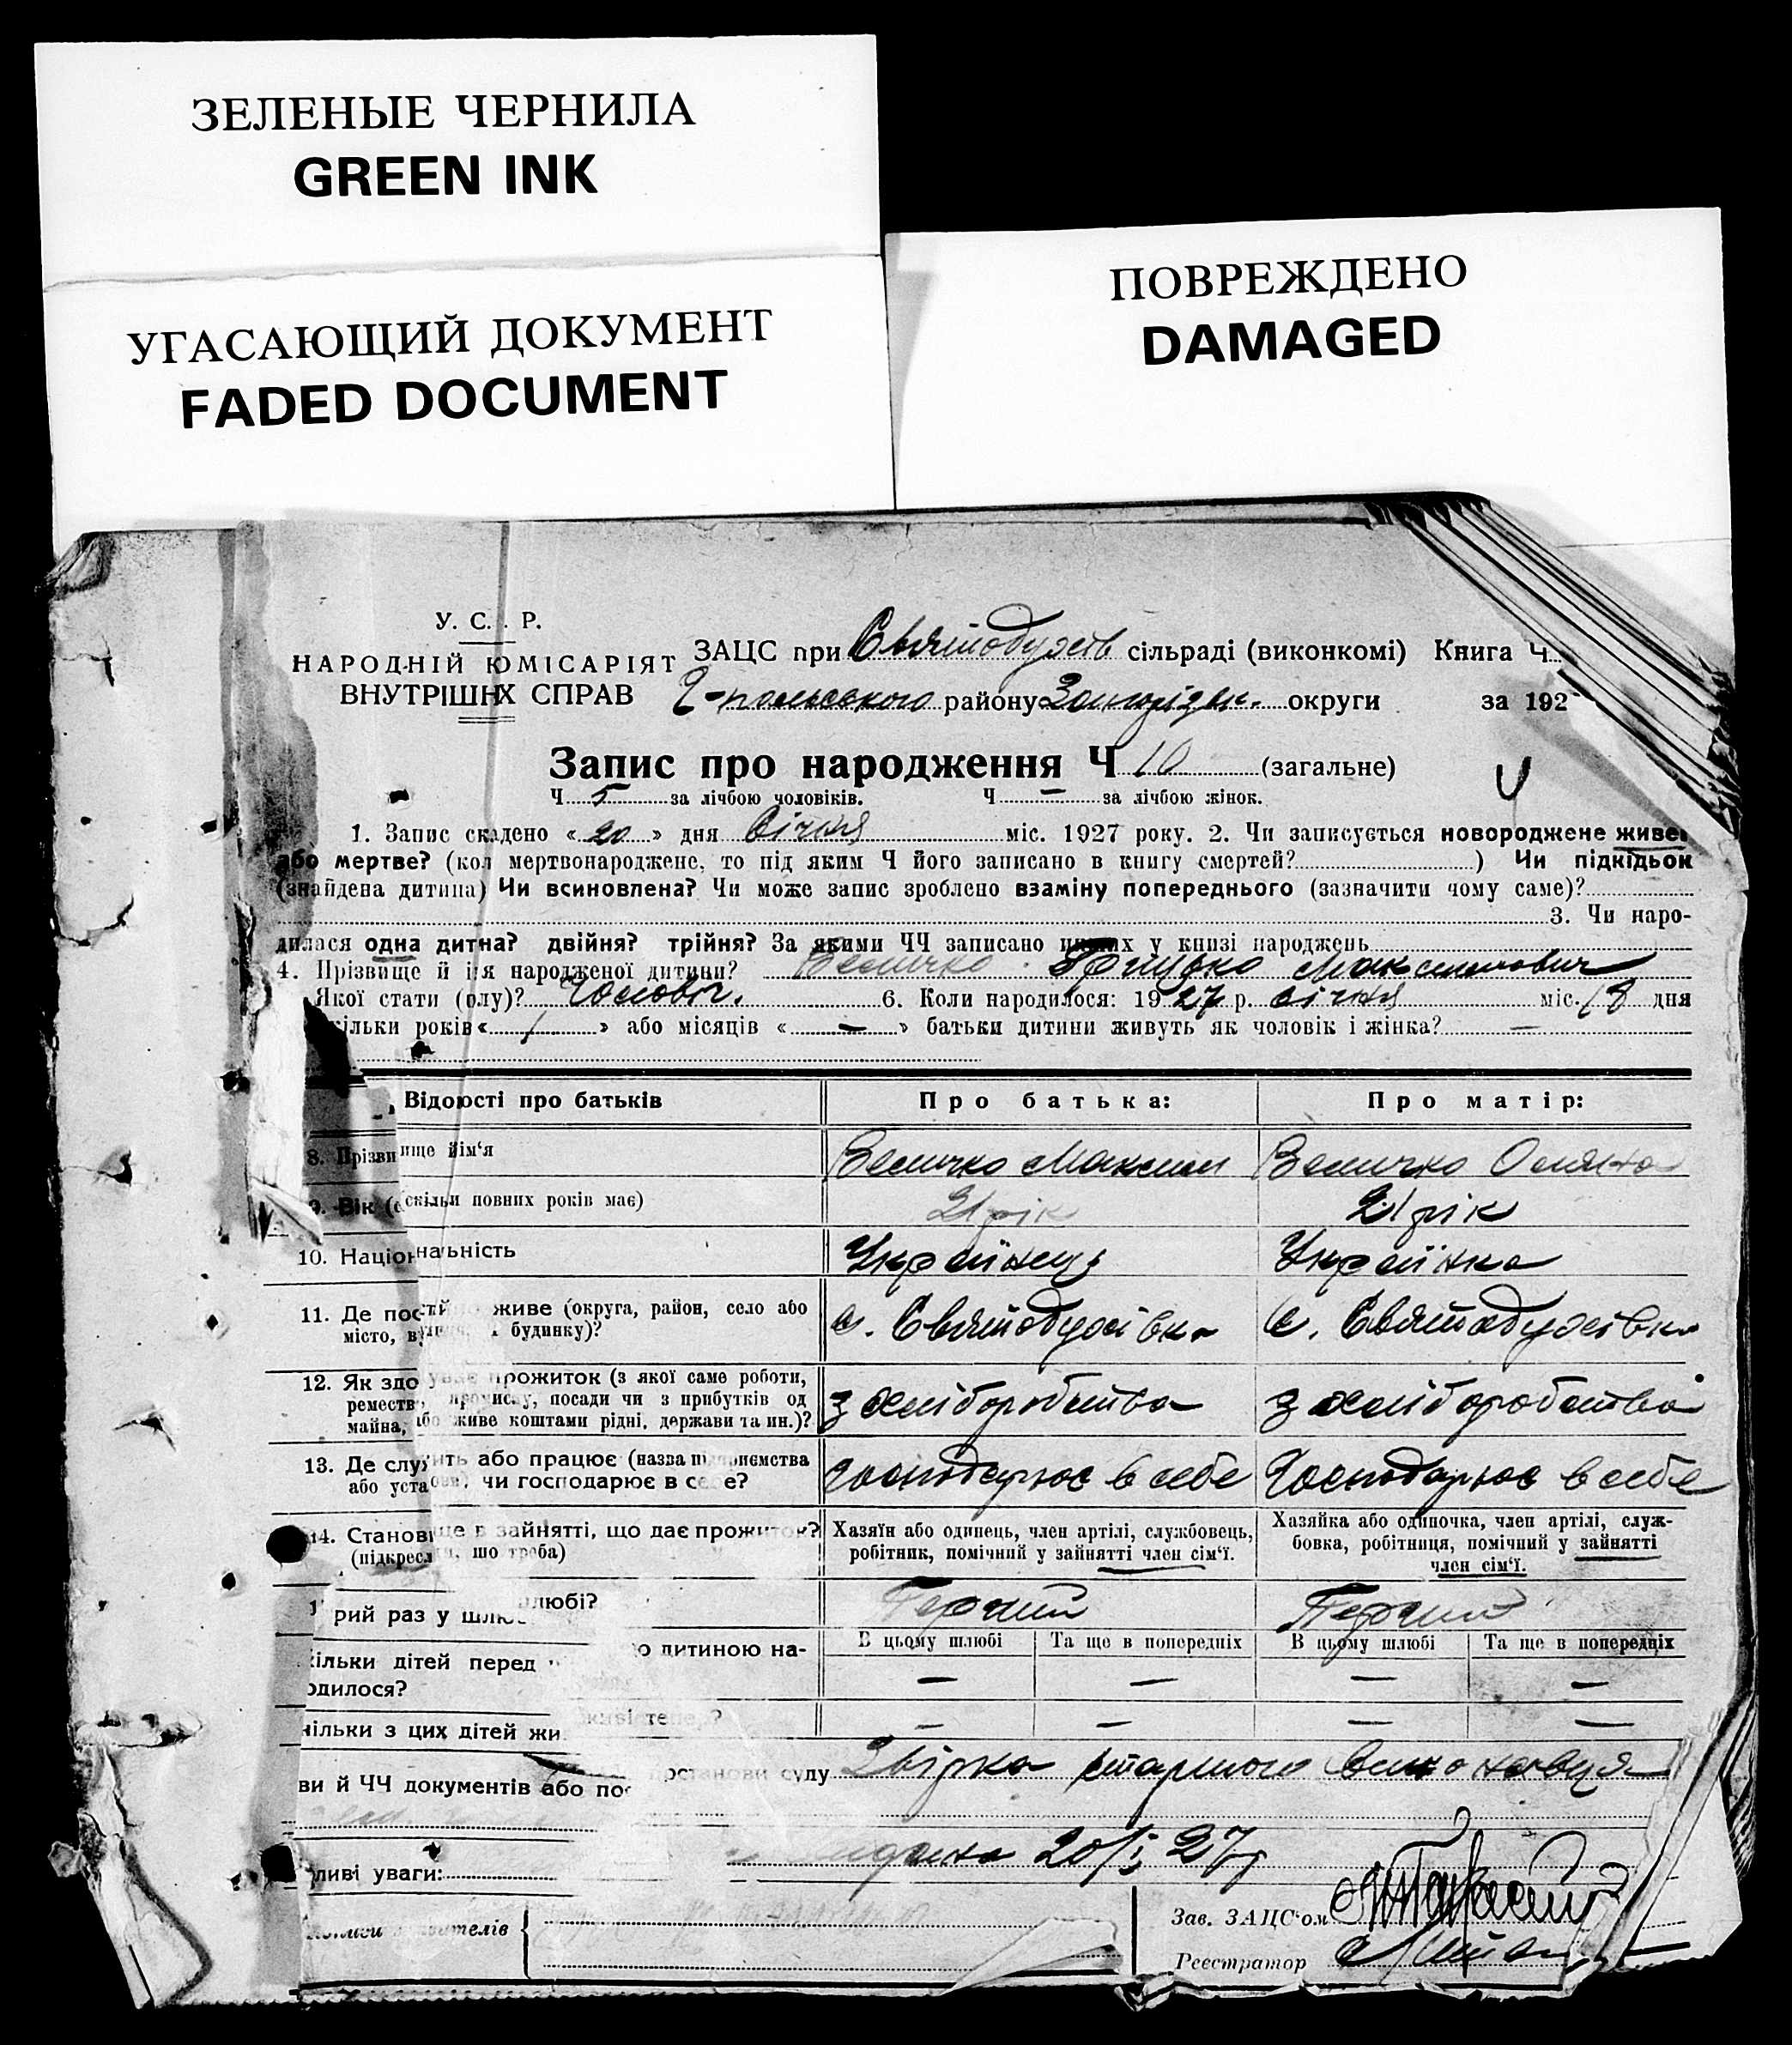 ЗЕЛЕНЫЕ ЧЕРНИЛА
GREEN INK
УГАСАЮЩИЙ ДОКУМЕНТ
FADED DOCUMENT
ПОВРЕЖДЕНО
DAMAGED
У. С. Р.
НАРОДНІЙ ЮМІСАРІЯТ
ВНУТРІШНХ СПРАВ
ЗАЦС при сільраді (виконкомі) Книга Ч.
району округи за 192
Запис про народження Ч 10 (загальне)
Ч 5 за лічбою чоловіків. Ч — за лічбою жінок.
1. Запис складено « 20 » дня Січня міс. 1927 року. 2. Чи записується новороджене живе
або мертве? (кол мертвонароджене, то під яким Ч його записано в книгу смертей? ) Чи підкідьок
(знайдена дитина) Чи всиновлена? Чи може запис зроблено взаміну попереднього (зазначити чому саме)?
3. Чи наро-
дилася одна дитна? двійня? трійня? За якими ЧЧ записано инших у книзі народжень
4. Прізвище й ім'я народженої дитини? Величко Грицько Максимович
Якої стати (полу)? Чоловіч. 6. Коли народилося: 1927 р. січня міс. 18 дня
кільки років « 1 » або місяців « — » батьки дитини живуть як чоловік і жінка? —
Відомості про батьків Про батька: Про матір:
8. Прізвище йім'я Величко Максим Величко Оляна
9. Вік (скільки повних років має) 21 рік 21 рік
10. Національність Українець Українка
11. Де постійно живе (округа, район, село або
місто, вулиця, Ч будинку)?
12. Як здобуває прожиток (з якої саме роботи,
ремества, промислу, посади чи з прибутків од
майна, або живе коштами рідні, держави та ин.)? з хліборобства з хліборобства
13. Де служить або працює (назва підприємства
або установи) чи господарює в себе? господарює в себе господарює в себе
14. Становище в зайнятті, що дає прожиток?
(підкреслити, що треба)
Хазяїн або одинець, член артілі, службовець,
робітник, помічний у зайнятті член сім'ї.
Хазяйка або одиночка, член артілі, служ-
бовка, робітниця, помічний у зайнятті
член сім'ї.
рий раз у шлюбі? Перший Перший
В цьому шлюбі Та ще в попередніх В цьому шлюбі Та ще в попередніх
кільки дітей перед дитиною на-
родилося? — — — —
кільки з цих дітей живі тепер? — — — —
ви й ЧЧ документів або постанови суду Звідка старшого виконавця
20/I 27 р
ливі уваги:
Зав. ЗАЦС'ом
Реєстратор